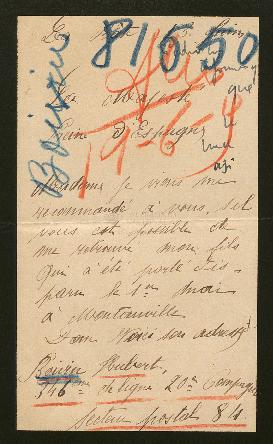 81050
Boivin
19-6-
Sa Majesté
Reine d'Espagne
Madame je viens me
recommandé à vous, s'il
vous est possible de
me retrouvé mon fils
qui a été porté dis-
paru le 1er mai
à
voici son adresse
Boivin Hubert.
146ème de ligne 20e Compagnie
Secteur postal 84